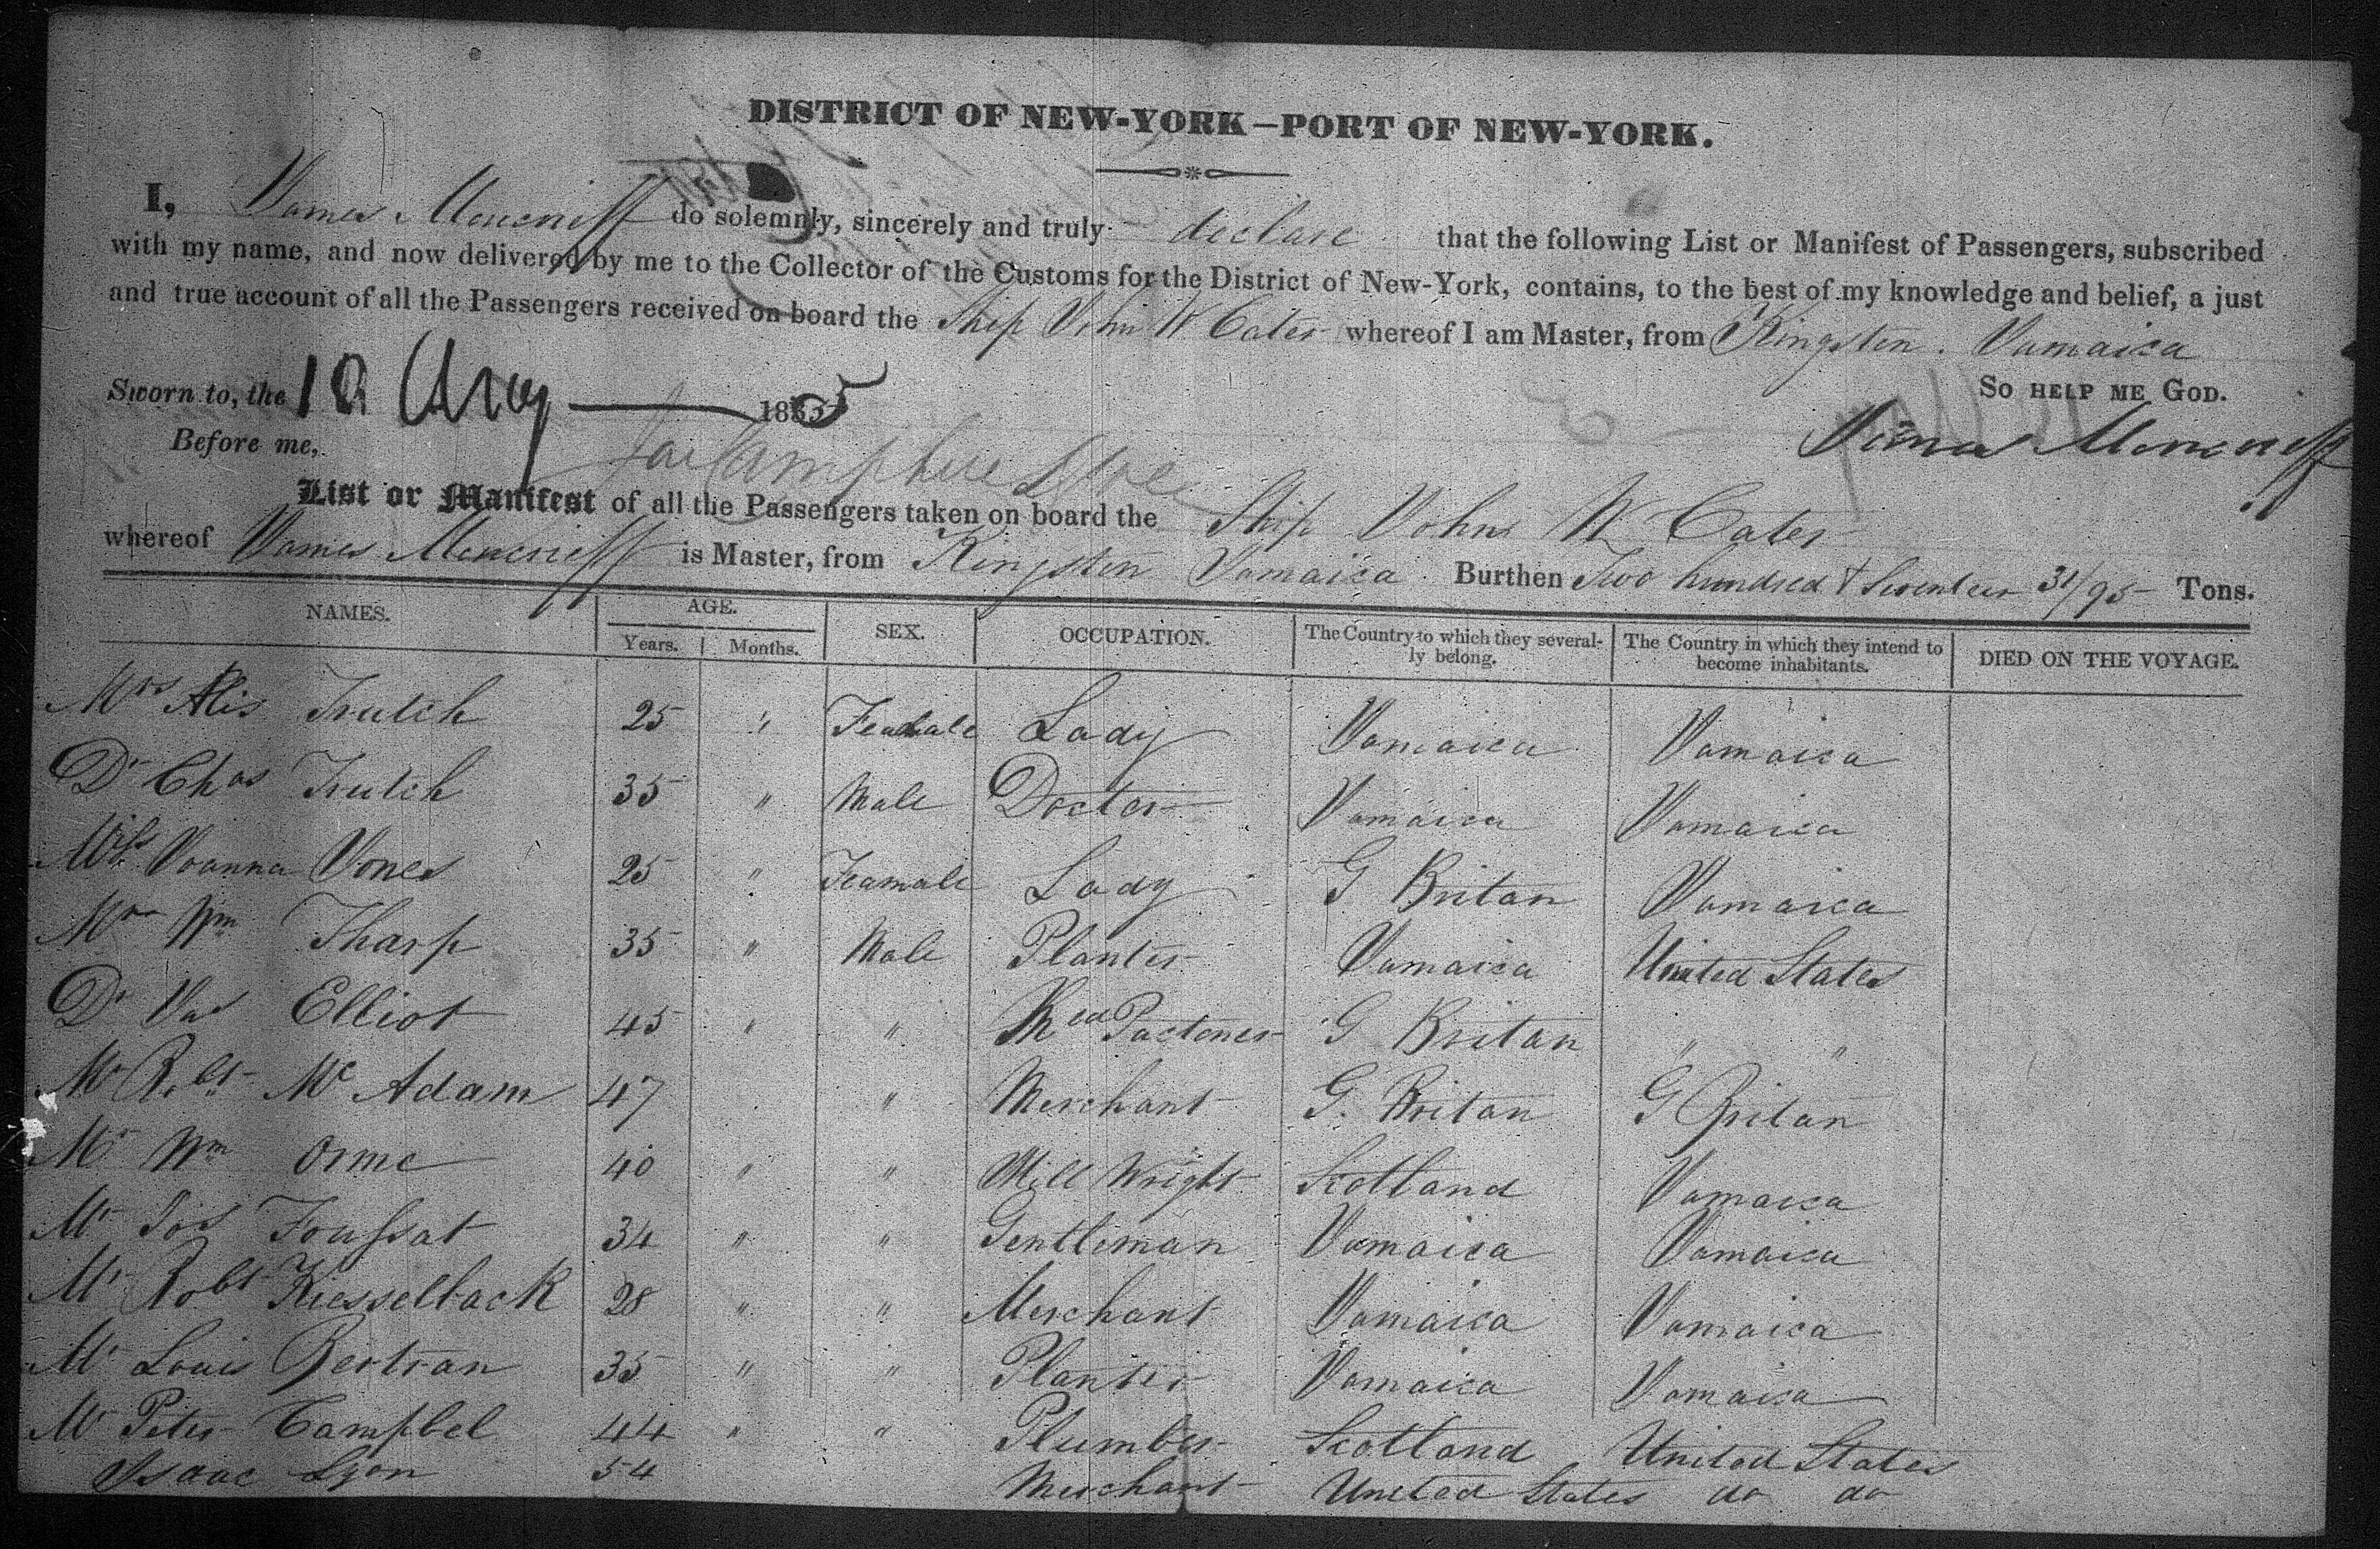 DISTRICT OF NEW-YORK—PORT OF NEW-YORK.
I, James Moncrieff do solemnly, sincerely and truly declare that the following List or Manifest of Passengers, subscribed
with my name, and now delivered by me to the Collector of the Customs for the District of New-York, contains, to the best of my knowledge and belief, a just
and true account of all the Passengers received on board the Ship John W Cater whereof I am Master, from Kingston. Jamaica
So HELP ME GOD.
Sworn to, the Aug 1835
James Moncrieff
Before me,
List or Manifest of all the Passengers taken on board the Ship John W Cater
whereof James Moncrieff is Master, from Kingston Jamaica Burthen Two hundred & Seventeen 31/95 Tons.
NAMES. AGE. Years. Months. SEX. OCCUPATION. The Country to which they several-ly belong. The Country in which they intend to become inhabitants. DIED ON THE VOYAGE.
Mrs Alis Trutch 25 " Feamale Lady Jamaica Jamaica
Dr Chas Trutch 35 " Male Doctor Jamaica Jamaica
Miss Joanna Jones 25 " Feamale Lady G Britan Jamaica
Mr Wm Tharp 35 " Male Planter Jamaica United States
Dr Jas Elliot 45 " " Med Pactoner G Britan " "
Mr Robt McAdam 47 " Merchant G. Britan G Britan
Mr Wm Orme 40 " " Mill Wright Scotland Jamaica
Mr Jos Foussat 34 " " Gentleman Jamaica Jamaica
Mr Robt Kiesselback 28 " " Merchant Jamaica Jamaica
Mr Louis Bertran 35 " " Planter Jamaica Jamaica
Mr Peter Campbel 44 " " Plumber Scotland United States
Isaac Lyon 54 Merchant United States do do